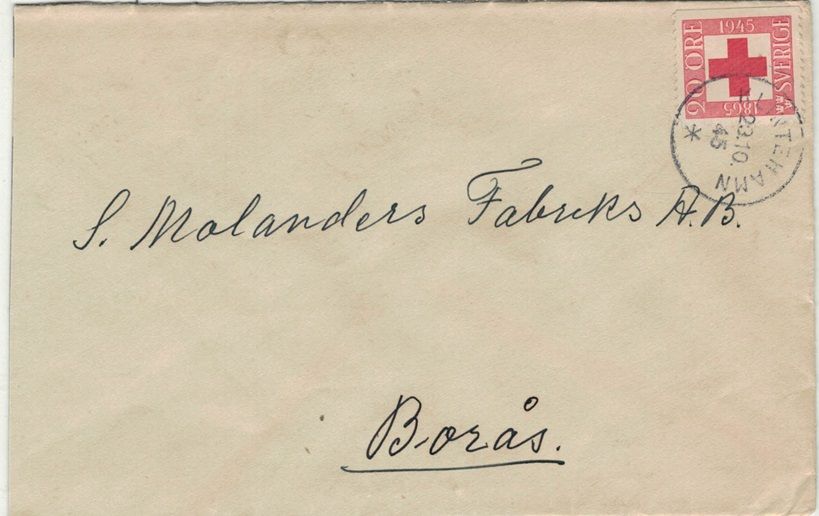 20 ÖRE
1945
1865
SVERIGE
KLINTEHAMN
23.10.
45
S. Molanders Fabriks A.B.
Borås.